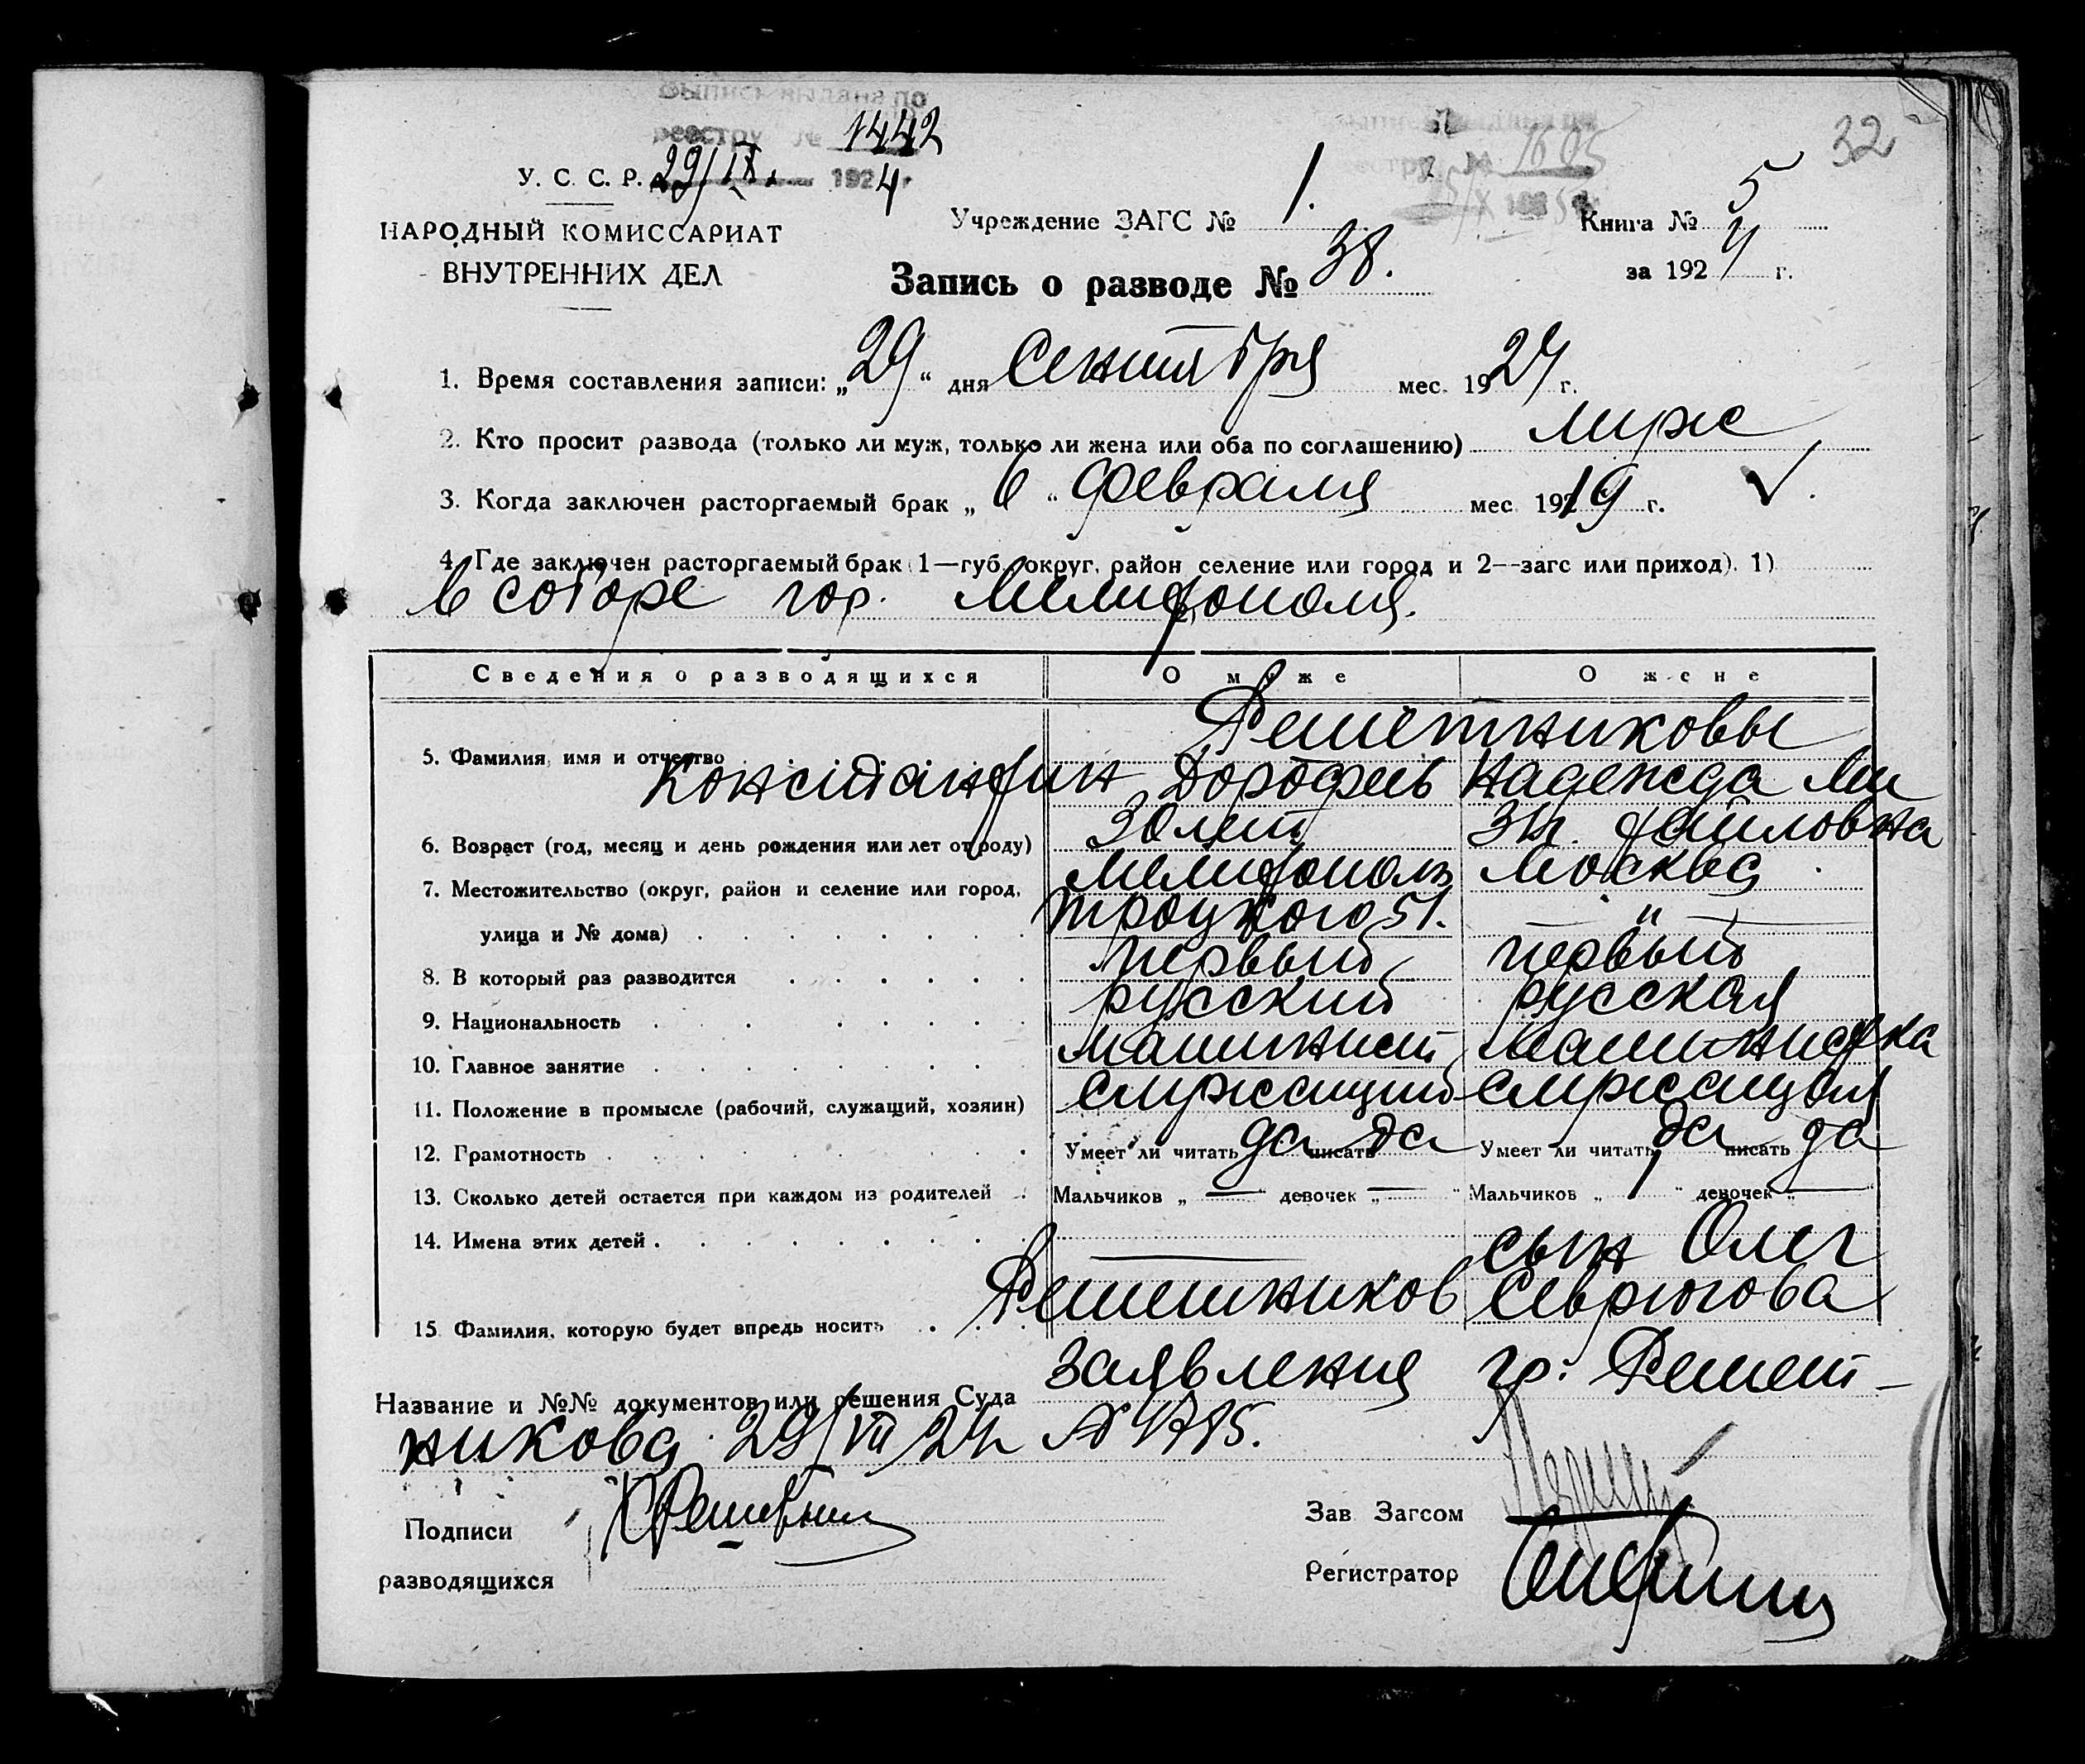 реестру № 1442
32
У. С. С. Р. 29/IX. 1924 г
Учреждение ЗАГС № 1.
Книга № 5
НАРОДНЫЙ КОМИССАРИАТ
ВНУТРЕННИХ ДЕЛ
за 1924 г.
Запись о разводе № 38.
1. Время составления записи: „29“ дня Сентября мес. 1924 г.
2. Кто просит развода (только ли муж, только ли жена или оба по соглашению) муж
3. Когда заключен расторгаемый брак „6“ февраля мес 1919 г.
4. Где заключен расторгаемый брак (1—губ., округ, район селение или город и 2—загс или приход). 1)
в соборе гор. Мелитополя.
Сведения о разводящихся О муже О жене
Решетниковы
5. Фамилия, имя и отчество Константин Дорофеев Надежда Ми
хайловна
6. Возраст (год, месяц и день рождения или лет от роду) 30 лет
7. Местожительство (округ, район и селение или город, Мелитополь Москва
улица и № дома) Троцкого 51. — " —
8. В который раз разводится первый первый
9. Национальность русский русская
10. Главное занятие машинист машинистка
11. Положение в промысле (рабочий, служащий, хозяин) служащий служащая
12. Грамотность Умеет ли читать да писать да Умеет ли читать да писать да
13. Сколько детей остается при каждом из родителей Мальчиков „ — “ девочек „ — “ Мальчиков „ 1 “ девочек „ — “
14. Имена этих детей — сын Олег
15 Фамилия, которую будет впредь носить Решетников Севрюгова
Название и №№ документов или решения Суда заявления гр. Решет-
никова 29/VII 24г. №
Подписи КРешетник
Зав Загсом
разводящихся
Регистратор